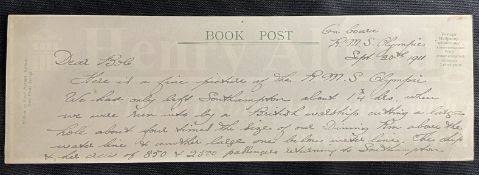 BOOK POST
On board
R.M.S. Olympic
Sept 20th 1911
Dear Bob
Here is a fine picture of the R.M.S. Olympic
We had only left Southampton about 1¼ hrs. when
we were run into by a British warship cutting a large
hole about four times the size of our Dinning Rm above the
water line & another large one below water line. This ship
& her crew of 850 & 2500 passengers returning to Southampton